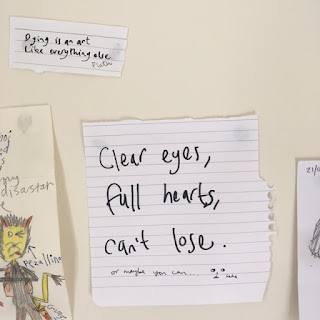 Dying is an art
Like everything else
Plath
Clear eyes,
full hearts,
can't lose.
or maybe you can...
disaster
21/0